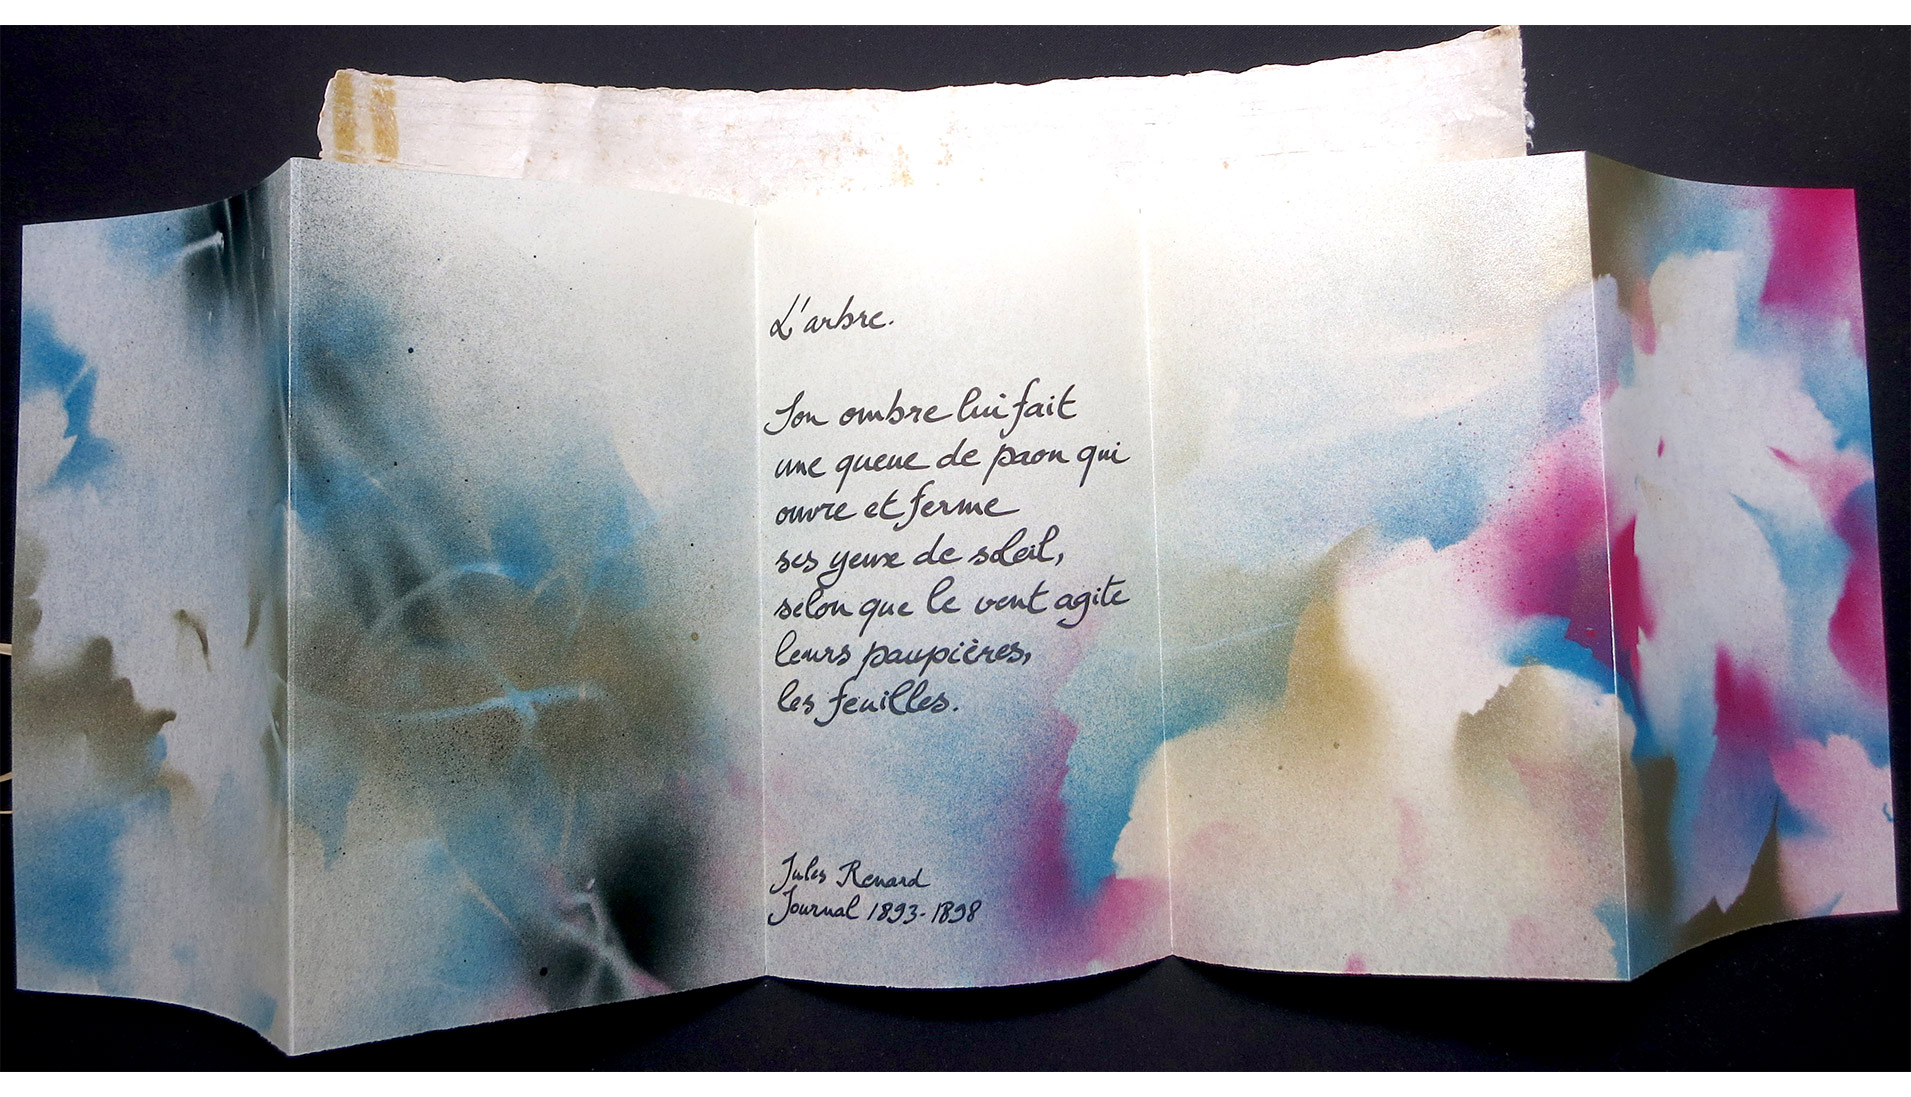 L'arbre.
Son ombre lui fait
une queue de paon qui
ouvre et ferme
ses yeux de soleil,
selon que le vent agite
leurs paupières,
les feuilles.
Jules Renard
Journal 1893-1898